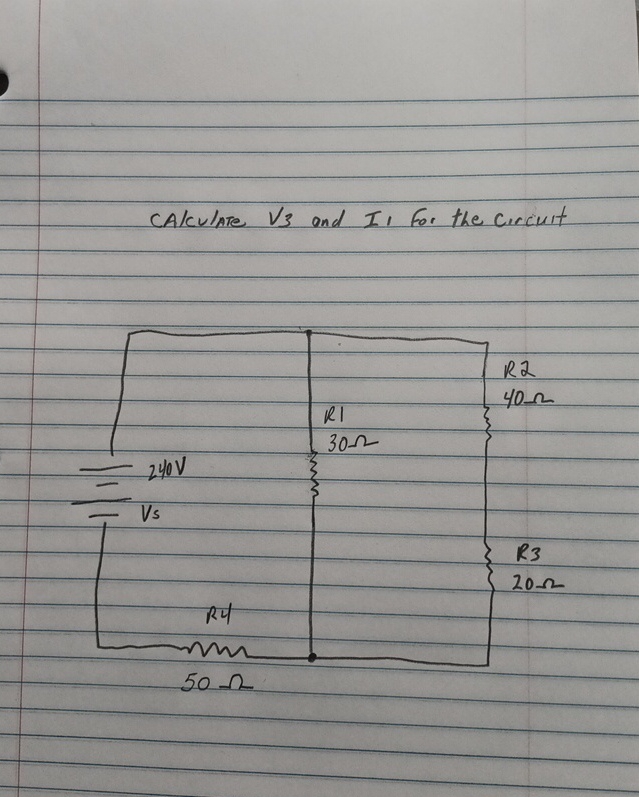 CAlculATe V3 and I1 for the Circuit
R2
40Ω
R1
30Ω
240V
Vs
R3
20Ω
R4
50 Ω